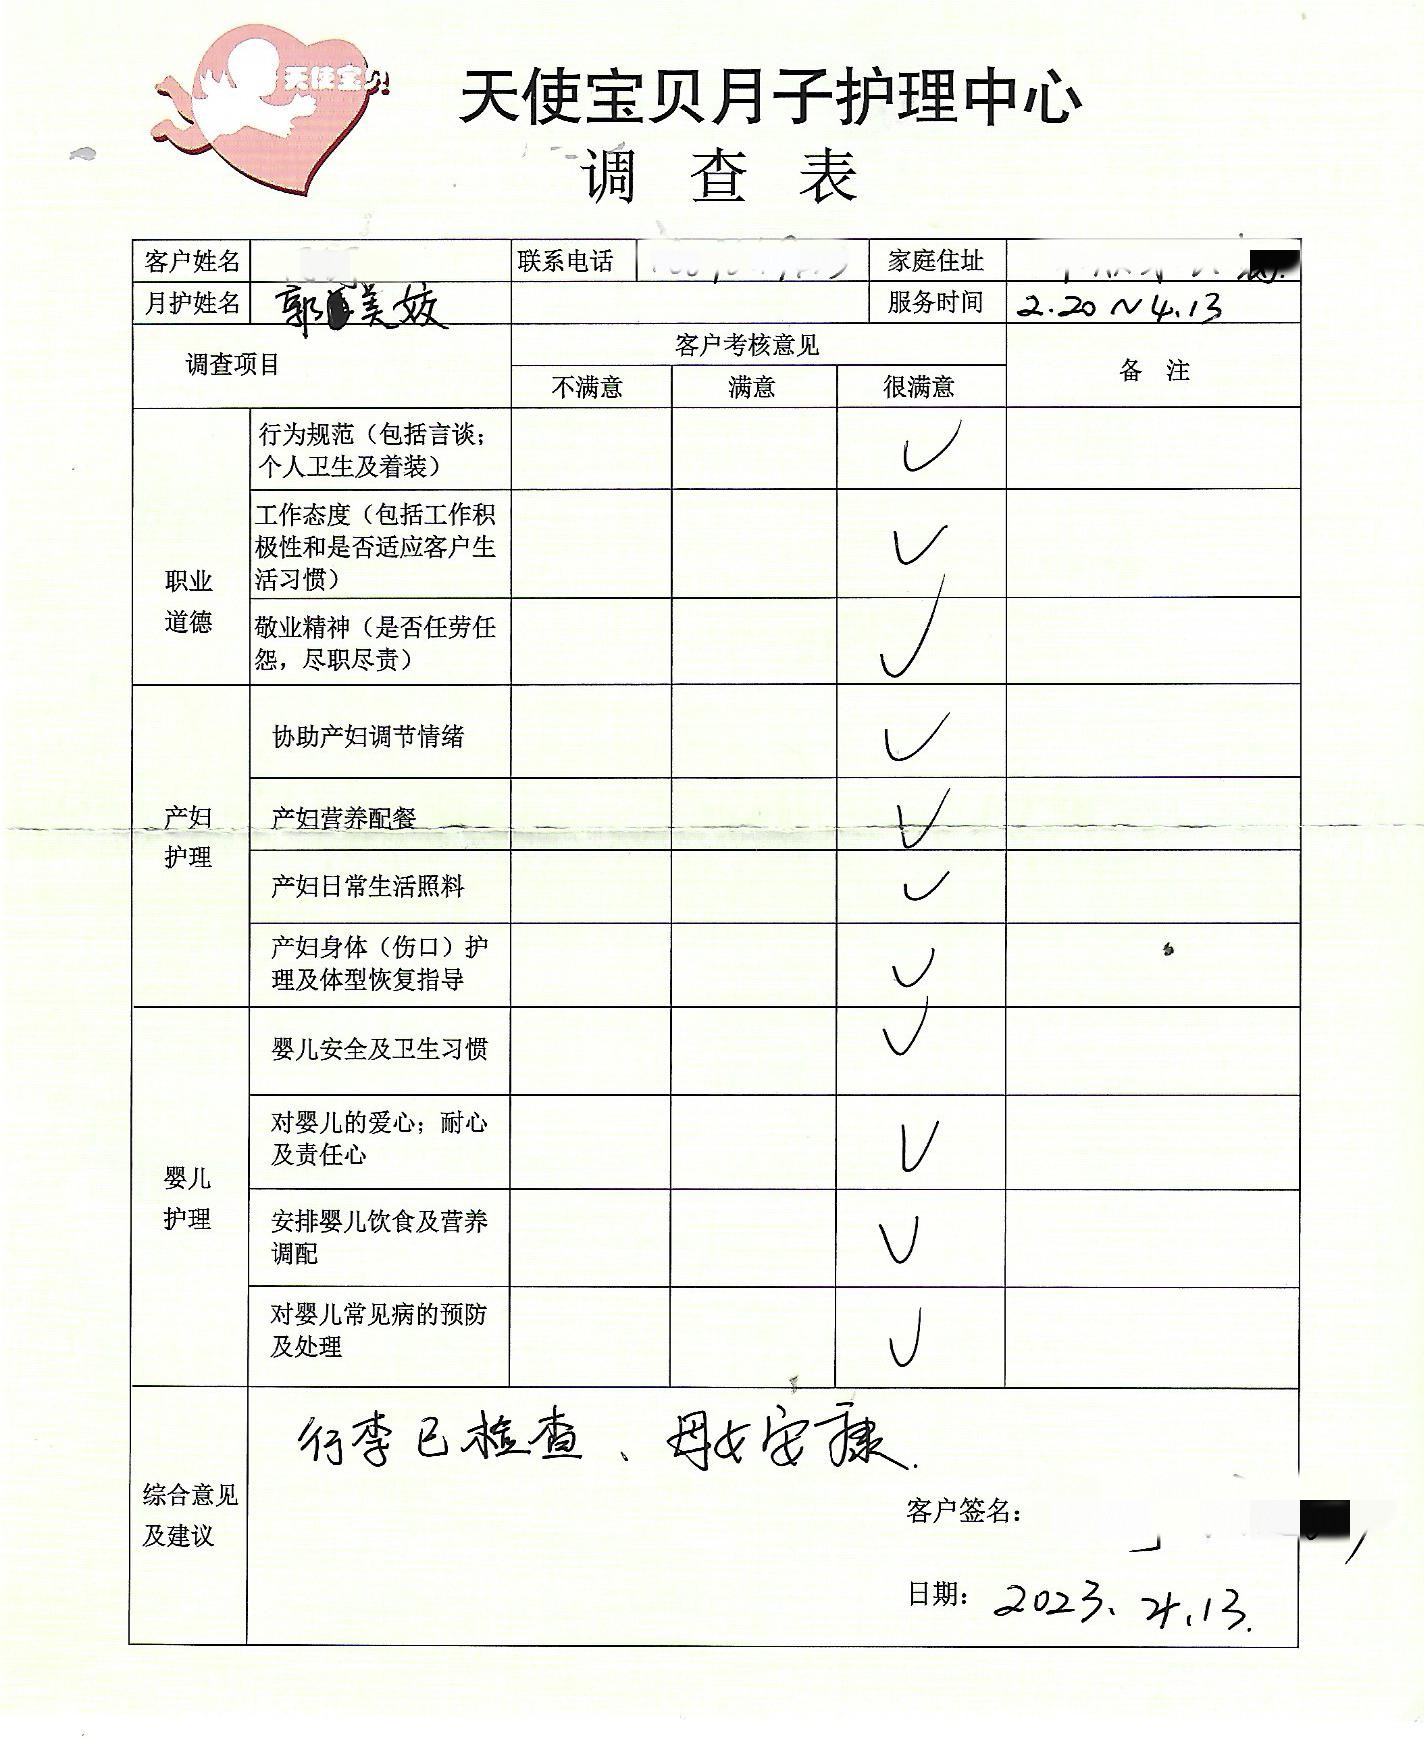 天使宝贝
天使宝贝月子护理中心
调 查 表
客户姓名 联系电话 家庭住址
月护姓名 郭美姣 服务时间 2.20~4.13
调查项目 客户考核意见 备 注
不满意 满意 很满意
职业
道德
行为规范（包括言谈；
个人卫生及着装）
✓
工作态度（包括工作积
极性和是否适应客户生
活习惯）
✓
敬业精神（是否任劳任
怨，尽职尽责）
✓
产妇
护理
协助产妇调节情绪 ✓
产妇营养配餐 ✓
产妇日常生活照料 ✓
产妇身体（伤口）护
理及体型恢复指导
✓
婴儿
护理
婴儿安全及卫生习惯 ✓
对婴儿的爱心；耐心
及责任心
✓
安排婴儿饮食及营养
调配
✓
对婴儿常见病的预防
及处理
✓
综合意见
及建议
行李已检查、母女安康.
客户签名：
日期：2023.4.13.